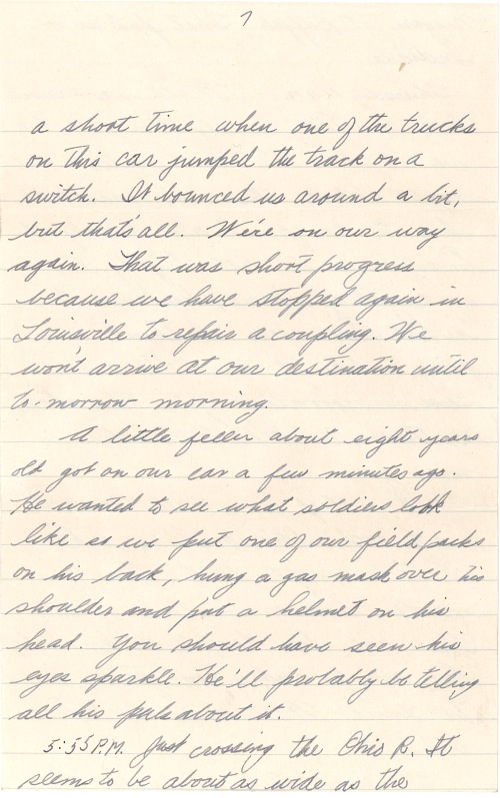 7
a short time when one of the trucks
on this car jumped the track on a
switch. It bounced us around a bit,
but that's all. We're on our way
again. That was short progress
because we have stopped again in
Louisville to repair a coupling. We
won't arrive at our destination until
to-morrow morning.
A little feller about eight years
old got on our car a few minutes ago.
He wanted to see what soldiers look
like so we put one of our field packs
on his back, hung a gas mask over his
shoulder and put a helmet on his
head. You should have seen his
eyes sparkle. He'll probably be telling
all his pals about it.
5:55 P.M. Just crossing the Ohio R. It
seems to be about as wide as the